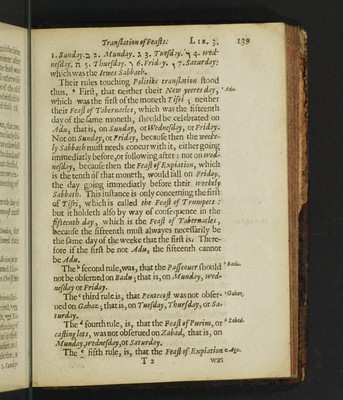 Translation of Feasts: LIB. 3. 139
1. Sunday. ב 2. Munday. ג 3. Tuesday. ד 4. Wed-
nesday. ה 5. Thursday. ו 6. Friday. ז 7. Saturday:
which was the Iewes Sabbath.
Their rules touching Politike translation stood
thus. ª First, that neither their New yeeres day, ª Adu.
which was the first of the moneth Tisri; neither
their Feast of Tabernacles, which was the fifteenth
day of the same moneth, should be celebrated on
Adu, that is, on Sunday, or Wednesday, or Friday.
Not on Sunday, or Friday, because then the weeke-
ly Sabbath must needs concur with it, either going
immediatly before, or following after: not on wed-
nesday, because then the Feast of Expiation, which
is the tenth of that moneth, would fall on Friday,
the day going immediatly before their weekely
Sabbath. This instance is only concerning the first
of Tisri, which is called the Feast of Trumpets:
but it holdeth also by way of consequence in the
fifteenth day, which is the Feast of Tabernacles,
because the fifteenth must alwayes necessarily be
the same day of the weeke that the first is. There-
fore if the first be not Adu, the fifteenth cannot
be Adu.
The ᵇ second rule, was, that the Passeouer should ᵇ Badu.
not be obserued on Badu; that is, on Munday, Wed-
nesday or Friday.
The ᶜ third rule is, that Pentecost was not obser- ᶜ Gahaz.
ued on Gahaz; that is, on Tuesday, Thursday, or Sa-
turday.
The ᵈ fourth rule, is, that the Feast of Purim, or ᵈ Zabad.
casting lots, was not obserued on Zabad, that is, on
Munday, Wednesday, or Saturday.
The ᵉ fifth rule, is, that the Feast of Expiation ᵉ Agu.
T 2 was